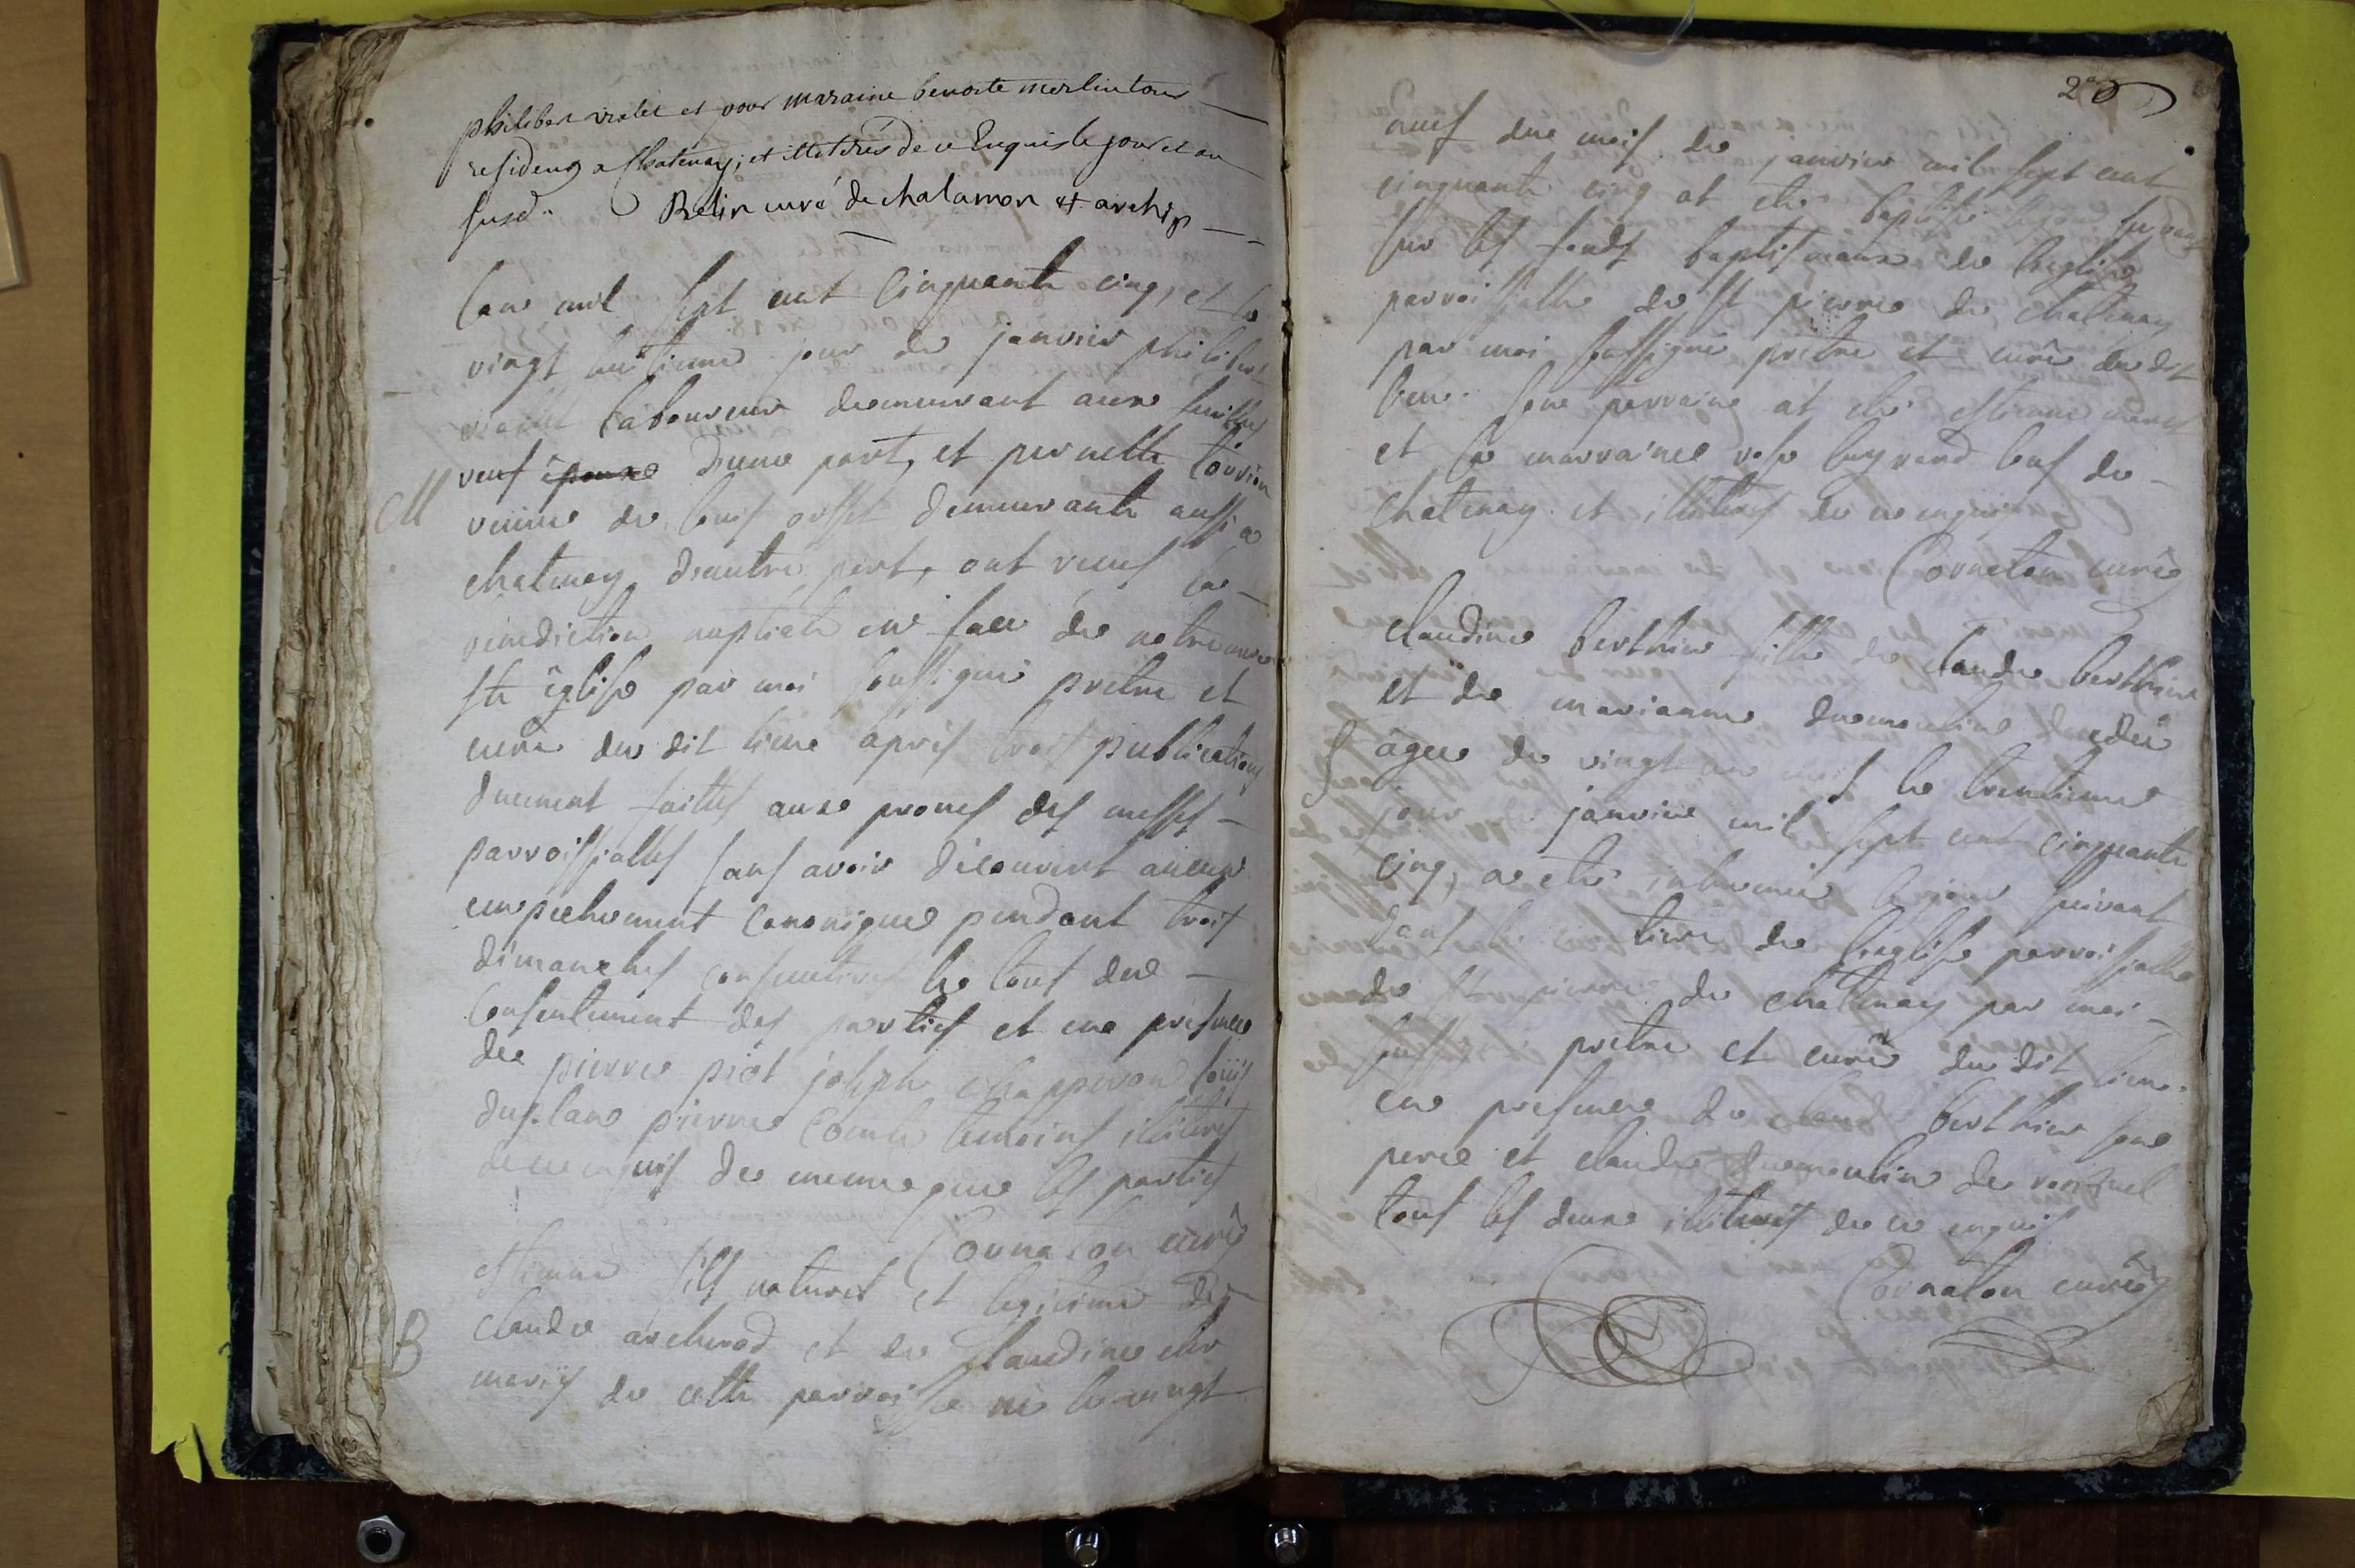 philibert violet et pour maraine benoite merlin tous
residens a Chatenay, et illetérés de ce Enquis le jour et an
susd. Belin curé de chalamon & archip
lan mil sept cent cinquante cinq, et le
vingt huitieme jour de janvier philibert
violet laboureur demeurant aux
veuf épouse d'une part, et pernette
veuve de louis demeurante aussi a
chatenay d'autre part, ont receus la
benediction nuptiale en face de notre mere
ste église par moi soussigné pretre et
curé du dit lieu après trois publications
duement faittes aux prones des messes
parroissialles sans avoir découvert aucun
empechement canonique pendant trois
dimanches consecutives le tout du
consentement des parties et en presence
de pierre piot joseph chapperon loüis
duplan pierre comte temoins illiteres
de ce enquis de meme que les parties
Cornaton curé
M
estienne fils naturel et legitime de
claude archerod et de claudine
mariés de cette parroisse né le vingt
B
2e
neuf du mois de janvier mil sept cent
cinquante cinq at eté baptisé
sur les fonds baptismaux de l'église
parroissialle de st pierre de chatenay
par moi soussigné pretre et curé du dit
lieu. son parrain at eté estienne
et la marraine rose tous de
chatenay et illiteres de ce enquis
Cornaton curé
claudine berthier fille de claude berthier
et de marianne dumoulin
S
âgée de vingt un mois le trentieme
jour de janvier mil sept cent cinquante
cinq, a eté inhumée le jour suivant
dans le cimetiere de l'église parroissialle
de st pierre de chatenay par moi
souss. pretre et curé du dit lieu.
en presence de claude berthier son
pere et claude dumoulin de
tous les deux illiteres de ce enquis
Cornaton curé